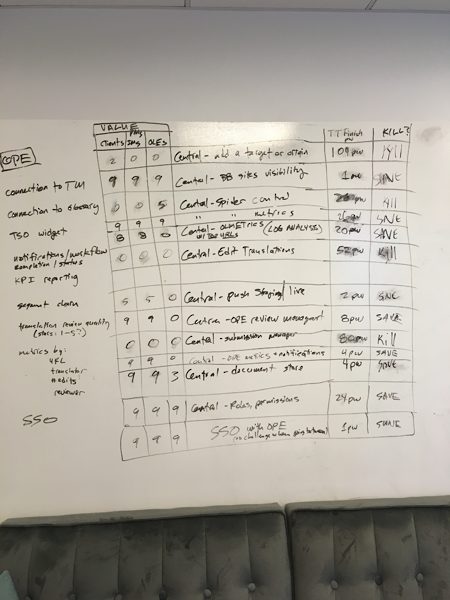 VALUE
CLIENTS PMs OLES TT Finish pw KILL?
2 0 0 Central - add a target or origin 104 pw Kill
9 9 9 Central - BB sites visibility 1 pw SAVE
0 0 5 Central - Spider control Kill
9 9 9 " " metrics SAVE
8 8 0 Central - (LOG ANALYSIS) 20 pw SAVE
0 0 0 Central - Edit Translations 52 pw Kill
5 5 0 Central - push Staging/live 2 pw
9 9 0 Central - OPE review management 8 pw SAVE
0 0 0 Central - submission manager 80 pw Kill
9 9 0 Central - OPE metrics + notifications 4 pw SAVE
9 9 3 Central - document store 4 pw SAVE
9 9 9 Central - Roles, permissions 24 pw SAVE
9 9 9 SSO with OPE 1 pw
(no challenge when going between)
OPE
connection to TM
connection to Glossary
TSO widget
notifications/workflow
completion/status
KPI reporting
segment
translation review quality
(stars: 1-5?)
metrics by:
translator
#edits
reviewer
SSO